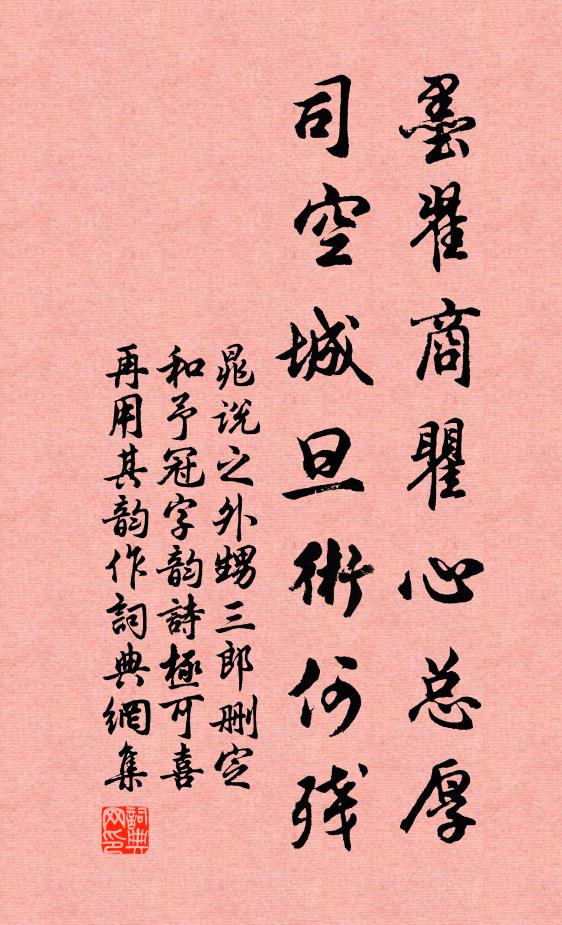 墨翟商瞿心总厚
司空城旦術何残
晁说之外甥三郎删定
和予冠字韵詩極可喜
再用其韵作詞典網集
詞典網印